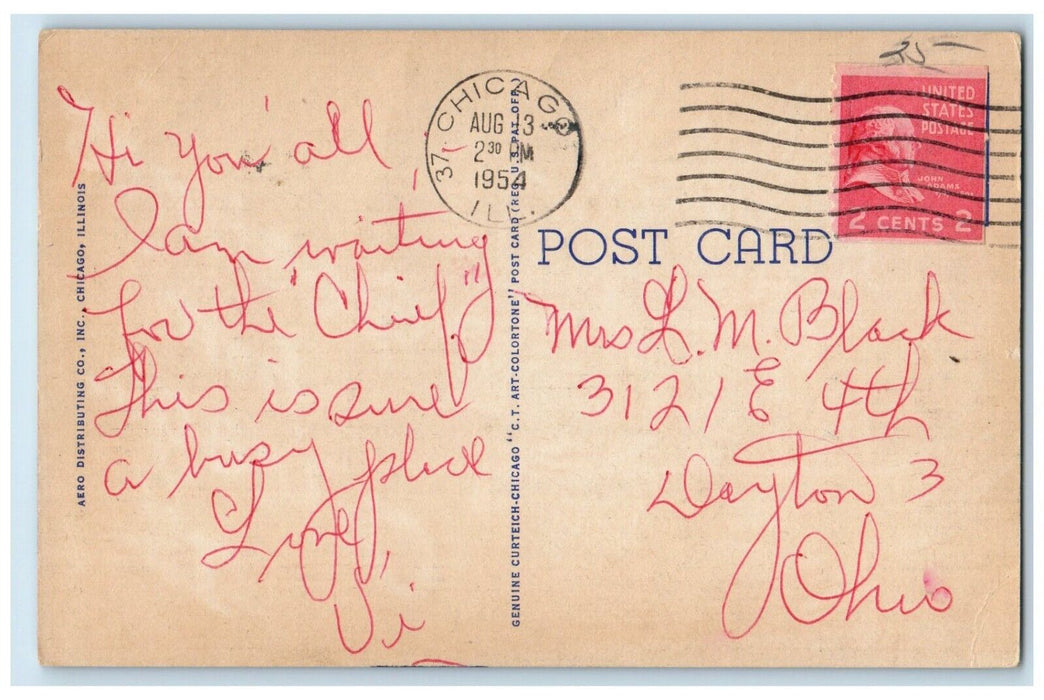 35-
Hi You'all
I am waiting
for the "Chief"
This is sure
a busy place
Love,
Vi
AERO DISTRIBUTING CO., INC., CHICAGO, ILLINOIS
GENUINE CURTEICH-CHICAGO "C.T. ART-COLORTONE" POST CARD (REG. U.S. PAT. OFF.)
CHICAGO
37
AUG 13
2 30 PM
1954
ILL.
UNITED
STATES
POSTAGE
JOHN
ADAMS
2 CENTS 2
POST CARD
Mrs L. M. Black
3121 E 4th
Dayton 3
Ohio